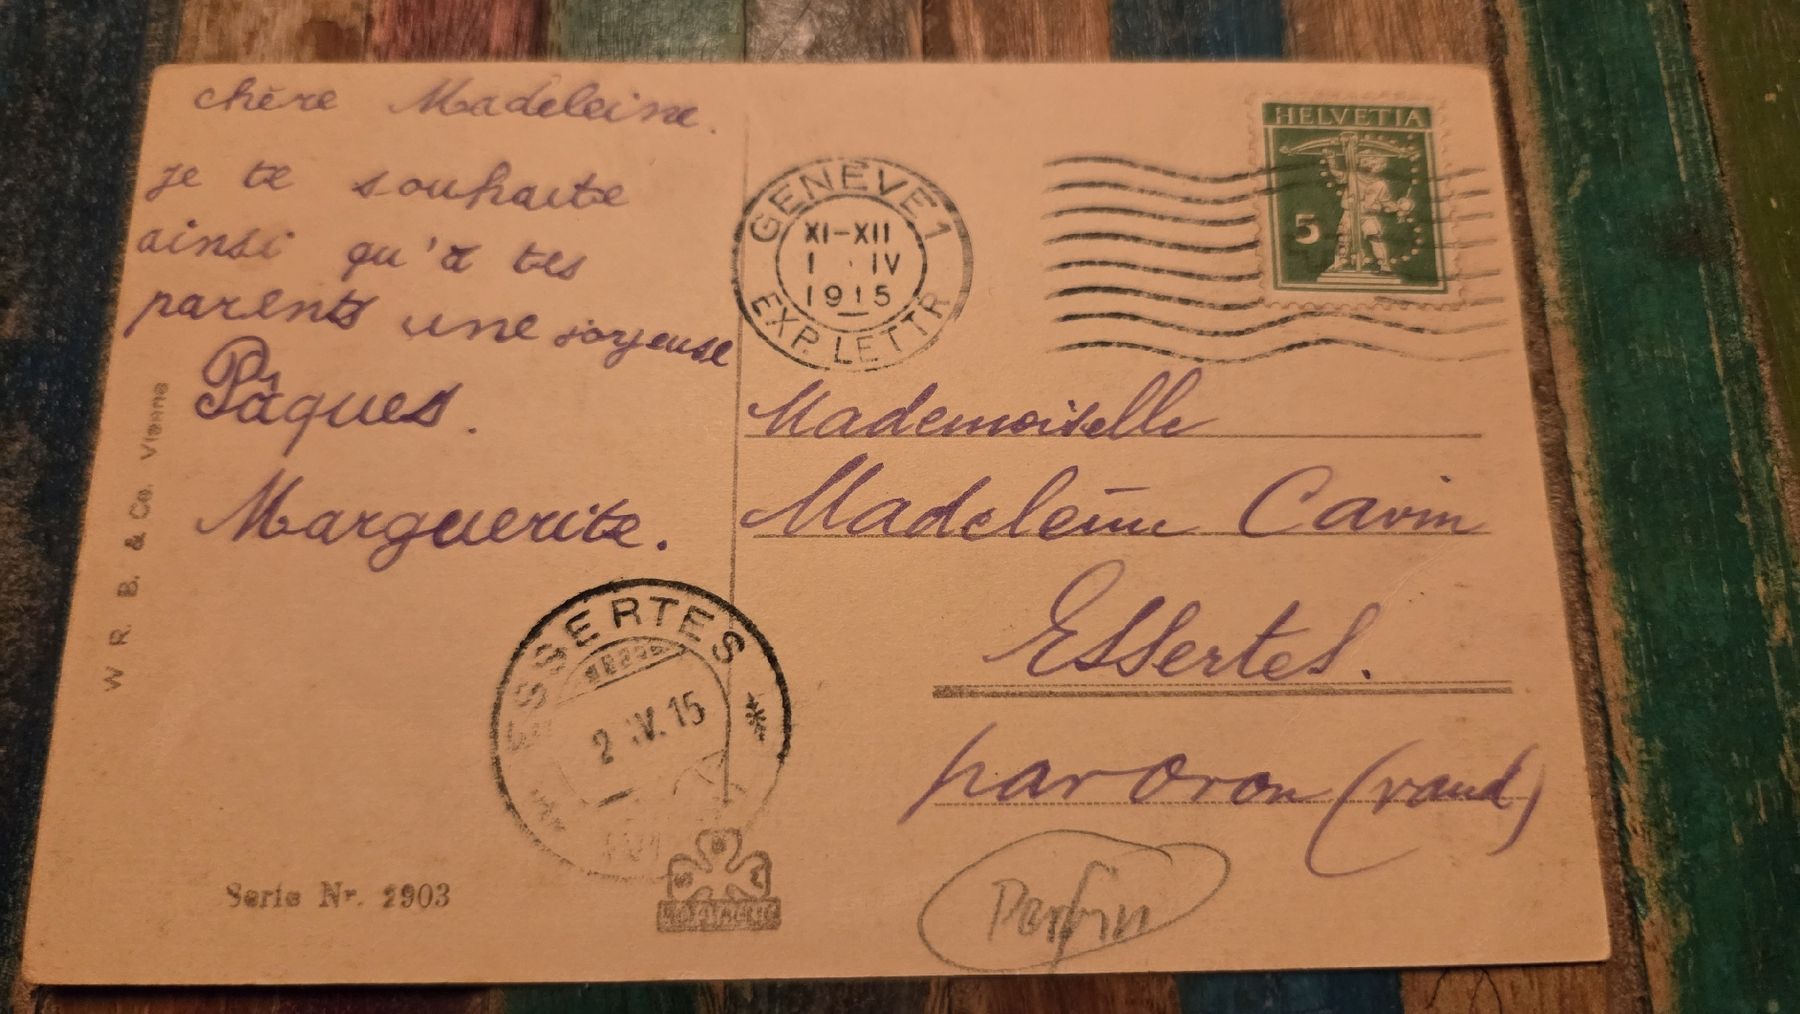 chère Madeleine.
je te souhaite
ainsi qu'à tes
parents une joyeuse
Pâques.
Marguerite.
W. R. B. & Co. Vienne
Serie Nr. 2903
GENÈVE 1
XI-XII
1 IV
1915
EXP. LETTR
HELVETIA
5
Mademoiselle
Madeleine Cavin
Essertes.
par Oron (vaud)
ESSERTES
2 .IV. 15
Perfin